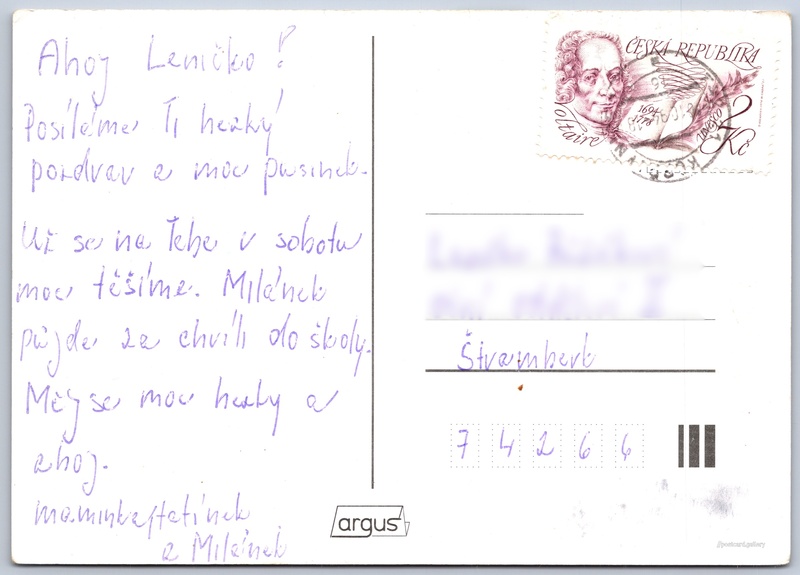 Ahoj Leničko!
Posíláme Ti hezký
pozdrav a moc pusinek.
Už se na Tebe v sobotu
moc těšíme. Milánek
půjde za chvíli do školy.
Měj se moc hezky a
ahoj.
maminka, tatínek
a Milánek
argus
ČESKÁ REPUBLIKA
Voltaire
1694
1778
unesco
2 Kč
Štramberk
7 4 2 6 6
//postcard.gallery